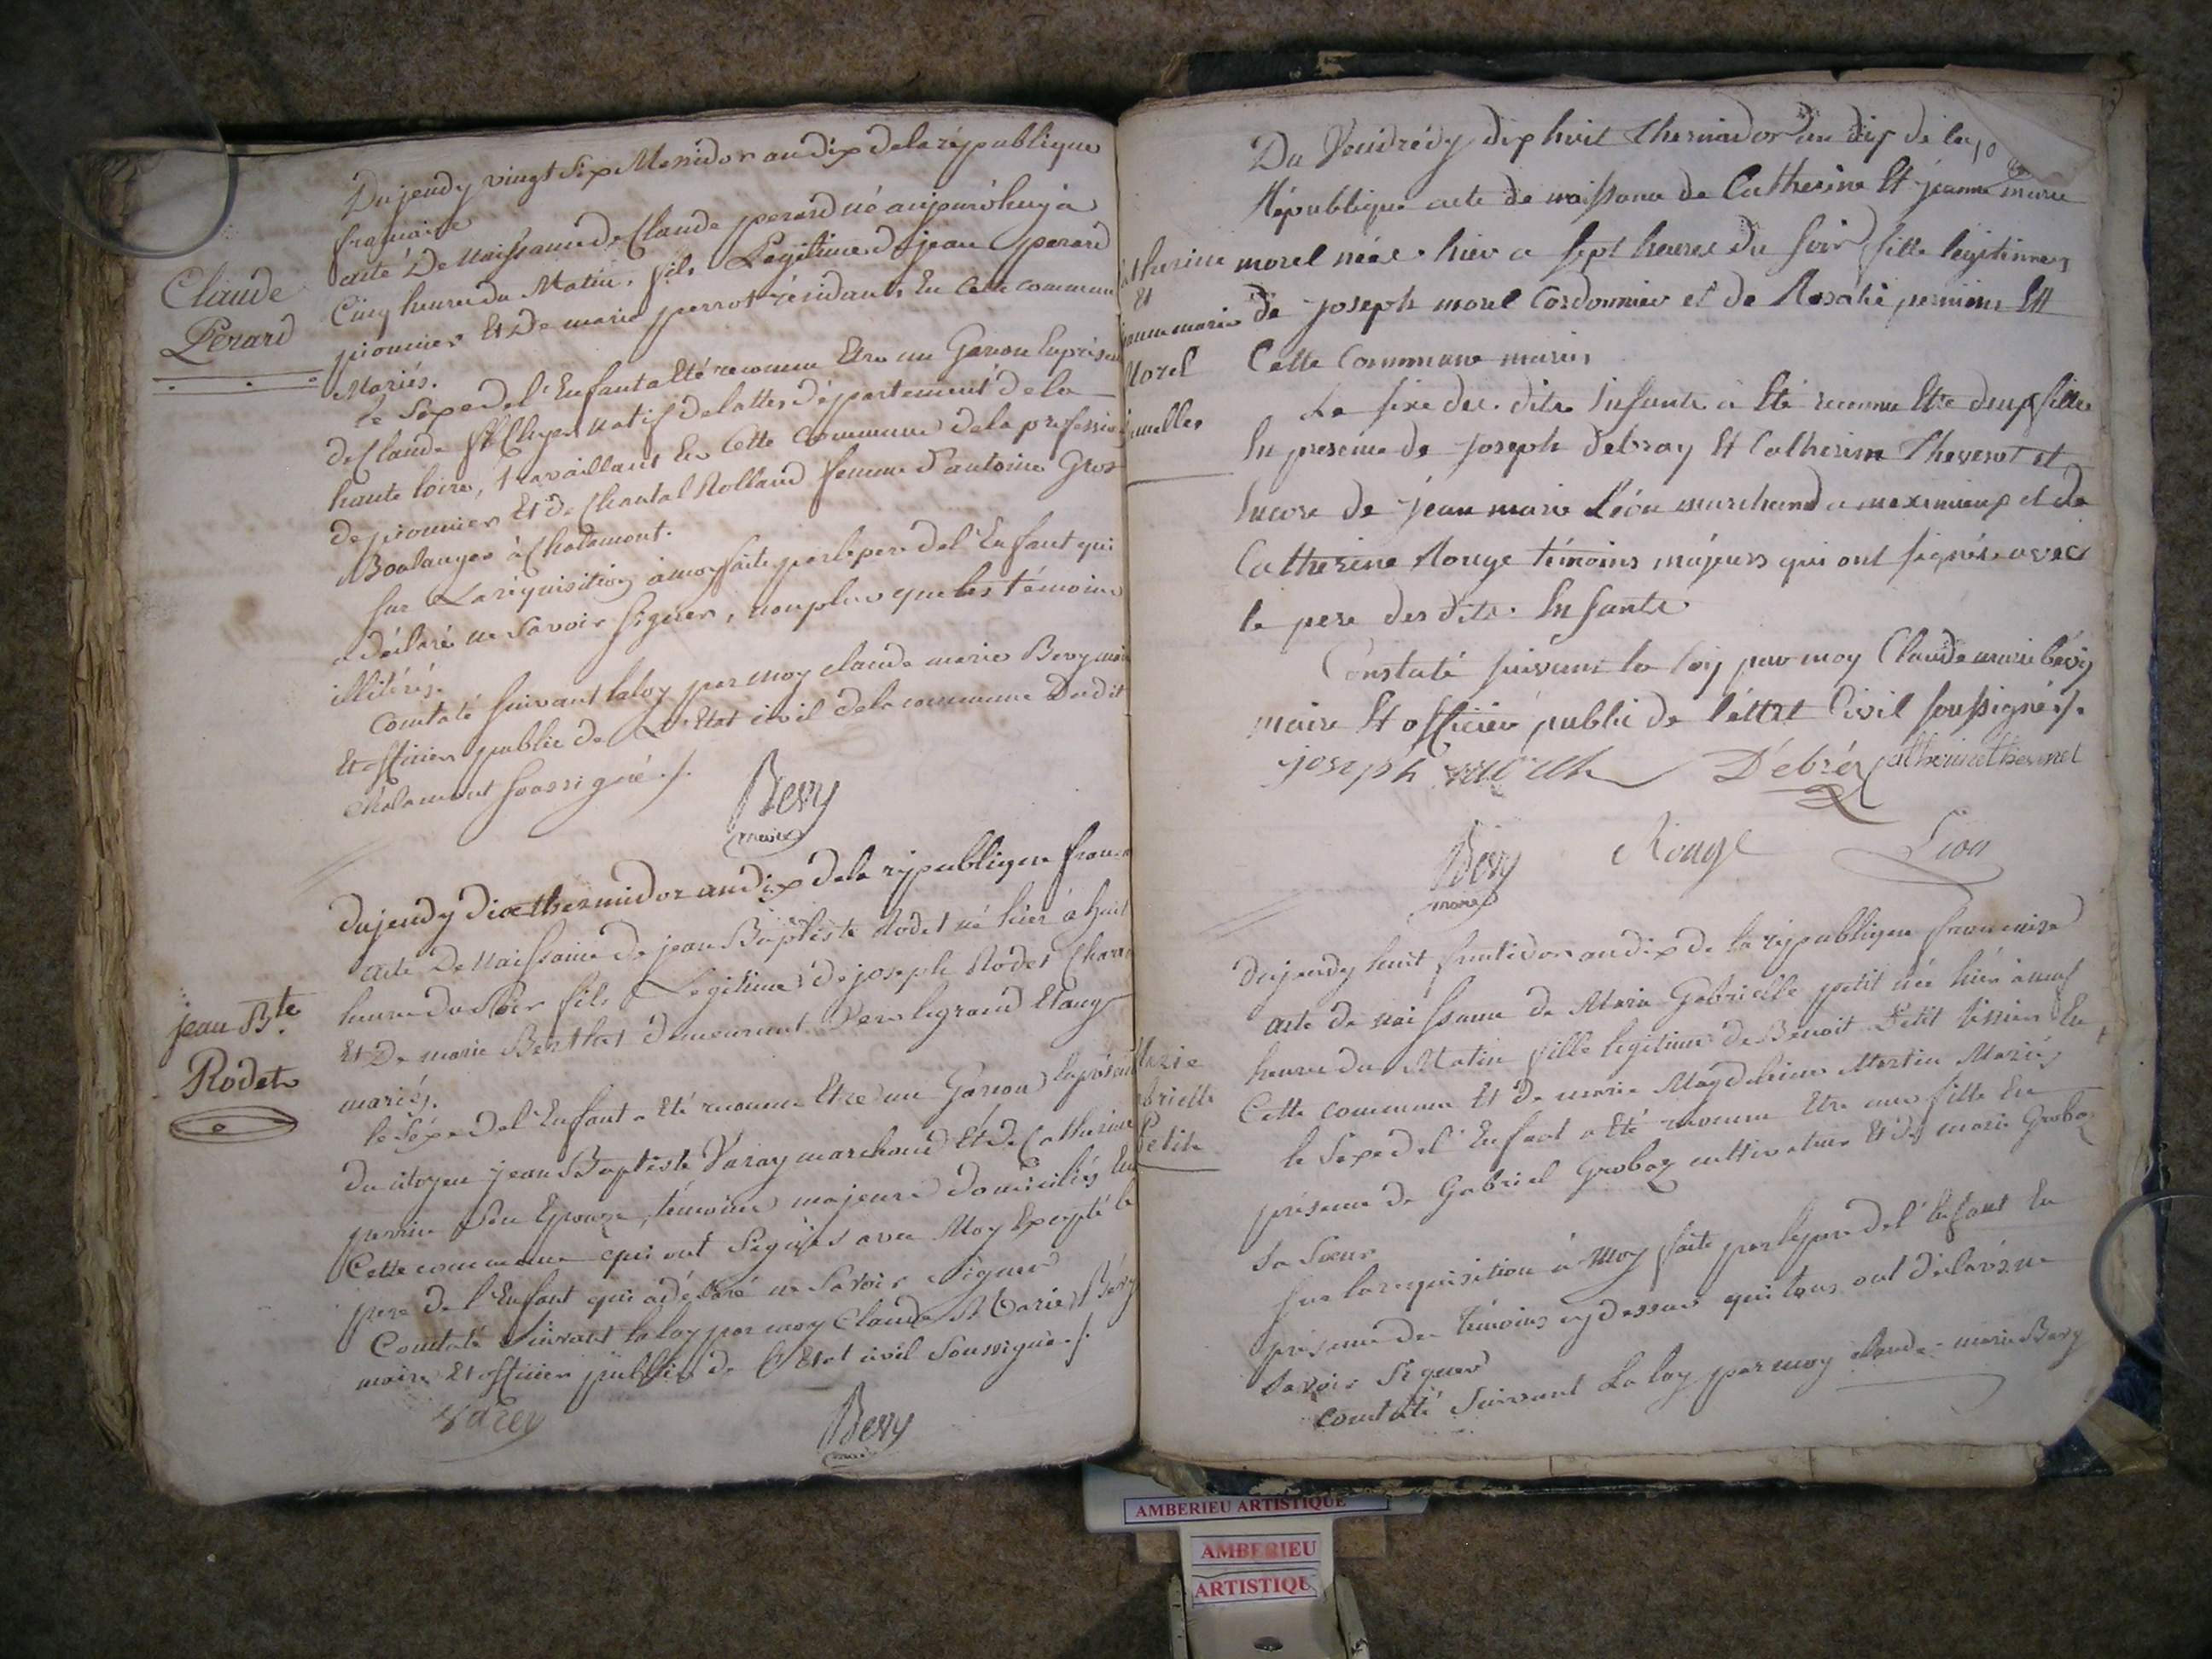 Du jeudy vingt Six Messidor an dix de la république
française
acte De Naissance de Claude perard né aujourd'huy à
Cinq heures du Matin, fils Légitime de jean perard
pionnier Et De marie perrot résidants En Cette commune
Mariés.
Claude
Perard
le Sexe de l'Enfant a Eté reconnu Etre un Garçon En présence
de Claude natif de département de la
haute loire, travaillant En Cette Commune de la profession
de pionnier Et de Chantal Rolland femme d'antoine Gros
Boulanger à Chalamont.
Sur La réquisition à moy faite par le pere de l'Enfant qui
a déclaré ne Savoir Signer, non plus que les témoins
illitérés.
Constaté Suivant la loy par moy claude marie Bevy maire
Et officier public de L'Etat civil de la commune Dudit
Chalamont Soussigné ./.
Bevy
maire
Du jeudy dix thermidor an dix de la république
acte De Naissance de jean Baptiste Rodet né hier à huit
heures du Soir fils Légitime de joseph Rodet
Et De marie Berthet demeurant Vers le grand Etang
mariés.
jean Bte
Rodet
le Sexe de l'Enfant a Eté reconnu Etre un Garçon En présence
du citoyen jean Baptiste Varay marchand Et de Catherine
perrin Son Epouze, témoins majeurs domiciliés En
Cette commune qui ont Signés avec Moy Excepté le
pere de l'Enfant qui a déclaré ne Savoir Signer
Constaté Suivant la loy par moy Claude Marie Bevy
maire Et officier public de l'Etat civil Soussigné ./.
varey
Bevy
maire
Du Vendrédy dix huit thermidor an dix de la
République acte de naissance de Catherine Et jeanne marie
morel nées hier a sept heures du soir fille legitimes
de joseph morel Cordonnier et de Rosalie
Cette Commune mariés
therine
Et
jeanne marie
Morel
jumelles
Le sexe des dits Infants a Eté reconnu Etre deux filles
En presence de joseph debray Et Catherine Thevenet et
Encore de jean marie Léon marchand a meximieux et de
Catherine Rouge témoins majeurs qui ont signés avec
le pere des dits Infants
Constaté suivant la loy par moy Claude marie bévy
maire Et officier public de l'état Civil soussigné ./.
joseph Débré Catherine thevenet
Bevy
maire
Rouge
Lion
Du jeudy huit fructidor an dix de la république francaise
acte de naissance de Marie Gabrielle petit née hier à neuf
heures du Matin fille legitime de Benoit Petit En
Cette commune Et de marie Magdeleine Martin Mariés
Marie
brielle
Petit
le Sexe de l'Enfant a Eté reconnu Etre une fille En
présence de Gabriel Grobaz cultivateur Et de marie Grobaz
Sa Sœur
Sur la requisition à Moy faite par le pere de l'Enfant En
présence des témoins cy dessus qui tous ont déclarés ne
Savoir Signer
Constaté Suivant La loy par moy claude marie Bevy
AMBERIEU ARTISTIQUE
AMBERIEU
ARTISTIQU